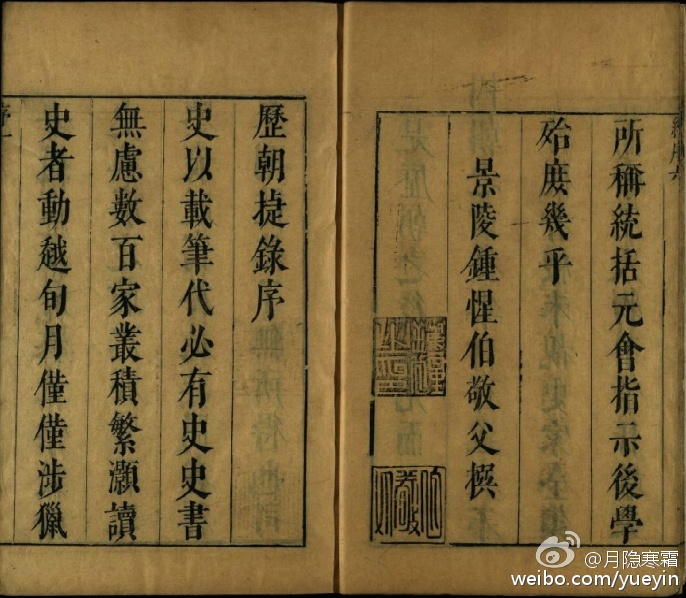 所稱統括元會指示後學
殆庶幾乎
景陵鍾惺伯敬父撰
鍾惺
之印
伯敬父
歷朝捷錄序
史以載筆代必有史史書
無慮數百家叢積繁灝讀
史者動越旬月僅僅涉獵
@月隐寒霜
weibo.com/yueyin